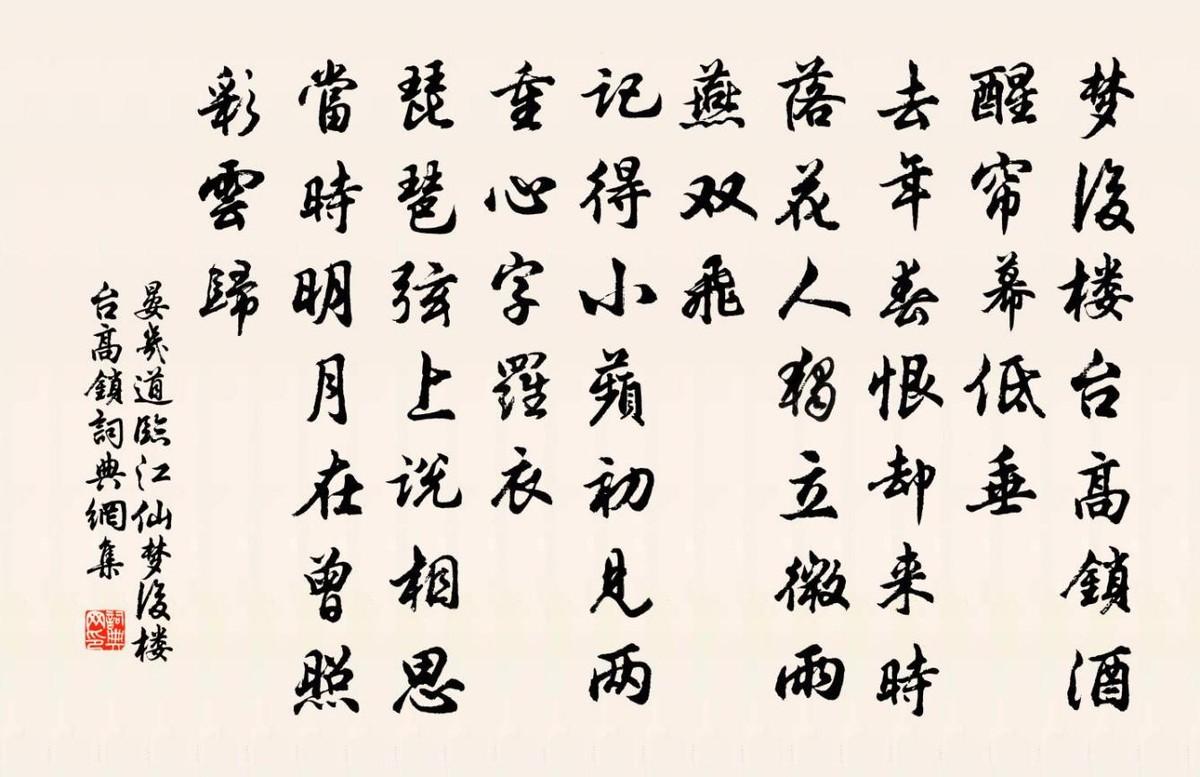 梦後楼台高鎖酒
醒帘幕低垂
去年春恨却来時
落花人獨立微雨
燕双飛
記得小蘋初見两
重心字羅衣
琵琶弦上説相思
當時明月在曾照
彩雲歸
晏幾道臨江仙梦後楼
台高鎖詞典網集
詞典网印